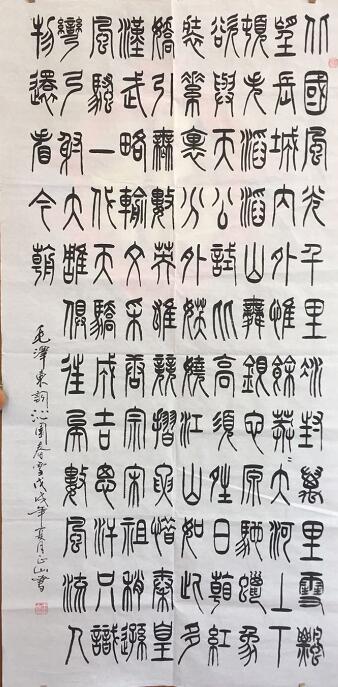 北國風光千里冰封萬里雪飄
望長城內外惟餘莽〻大河上下
頓失滔滔山舞銀蛇原馳蠟象
欲與天公試比高須晴日看紅
裝素裹分外妖嬈江山如此多
嬌引無數英雄競摺腰惜秦皇
漢武略輸文采唐宗宋祖稍遜
風騷一代天驕成吉思汗只識
彎弓射大雕俱往矣數風流人
物還看今朝
毛澤東詞沁園春雪戊戌年夏月正山書